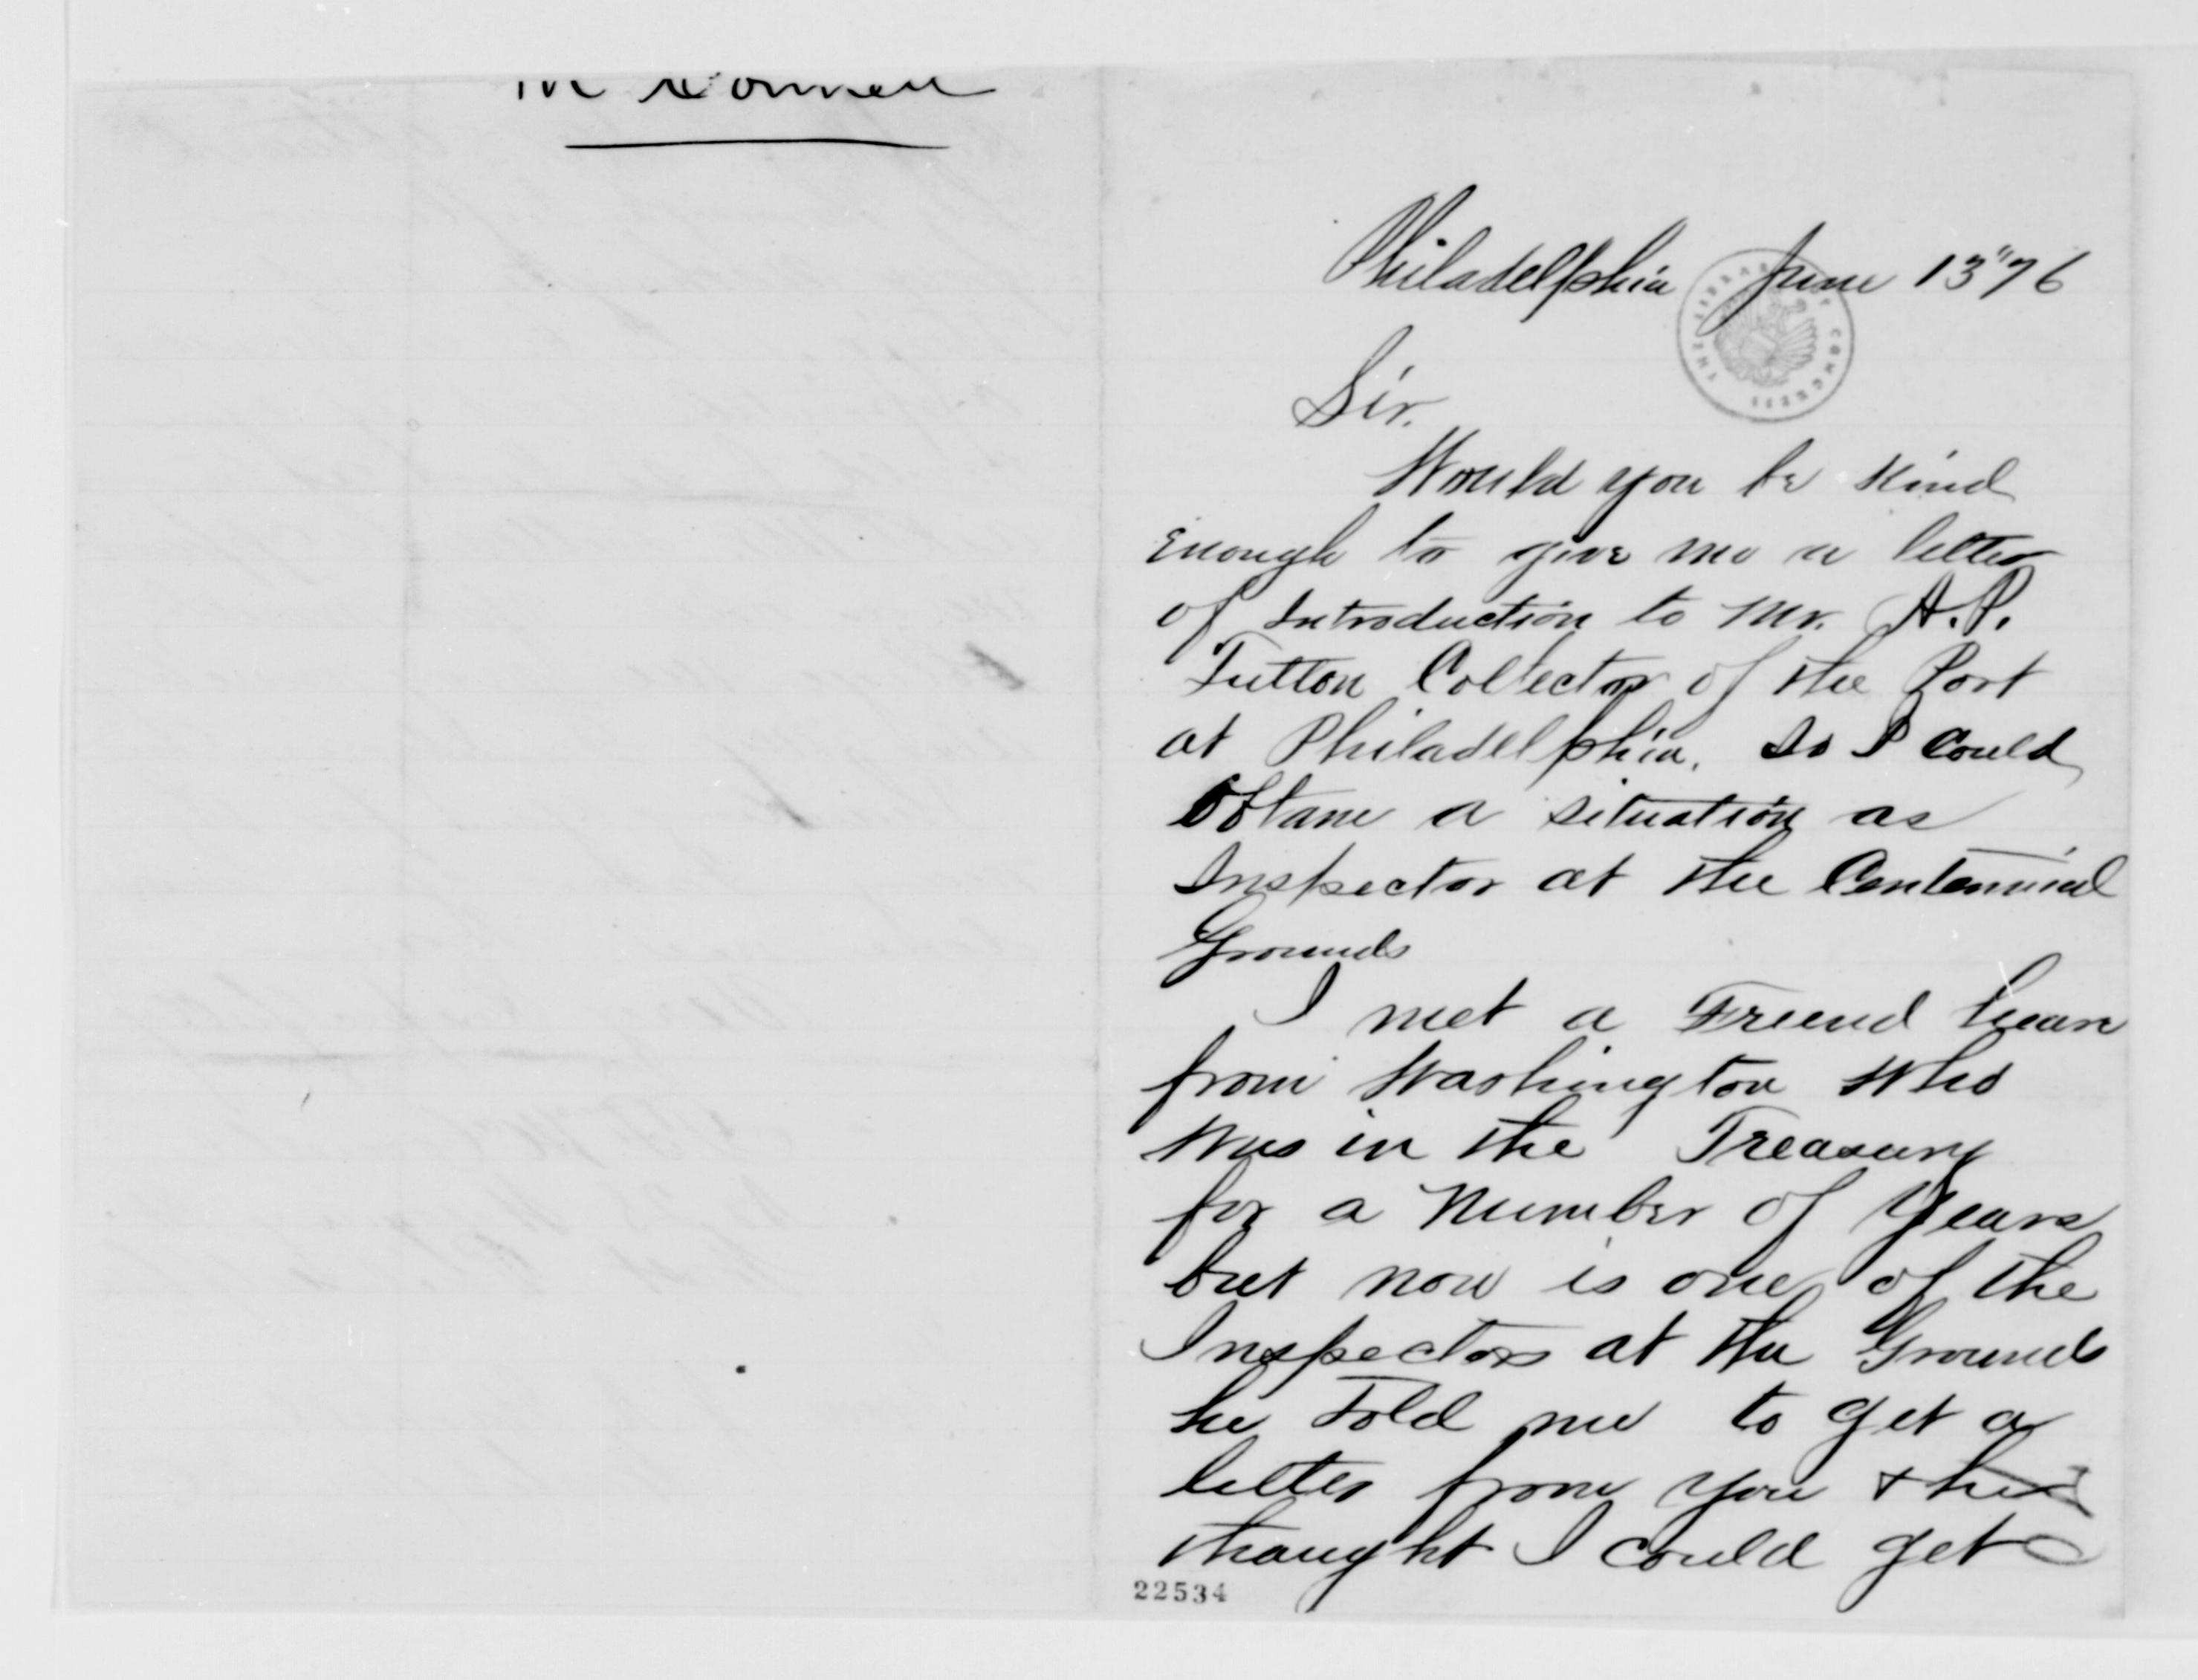 Mc Connell
Philadelphia June 13" 76
THE LIBRARY OF CONGRESS
Sir.
Would you be kind
enough to give me a letter
of Introduction to Mr. A.P.
Tutton Collector of the Port
at Philadelphia. So I Could
Obtane a situation as
Inspector at the Centennial
Grounds
I met a Freend hear
from Washington who
was in the Treasury
for a Number of Years
but now is one of the
Inspectors at the Grounds
he Told me to get a
letter from you & he
thaught I could get
22534